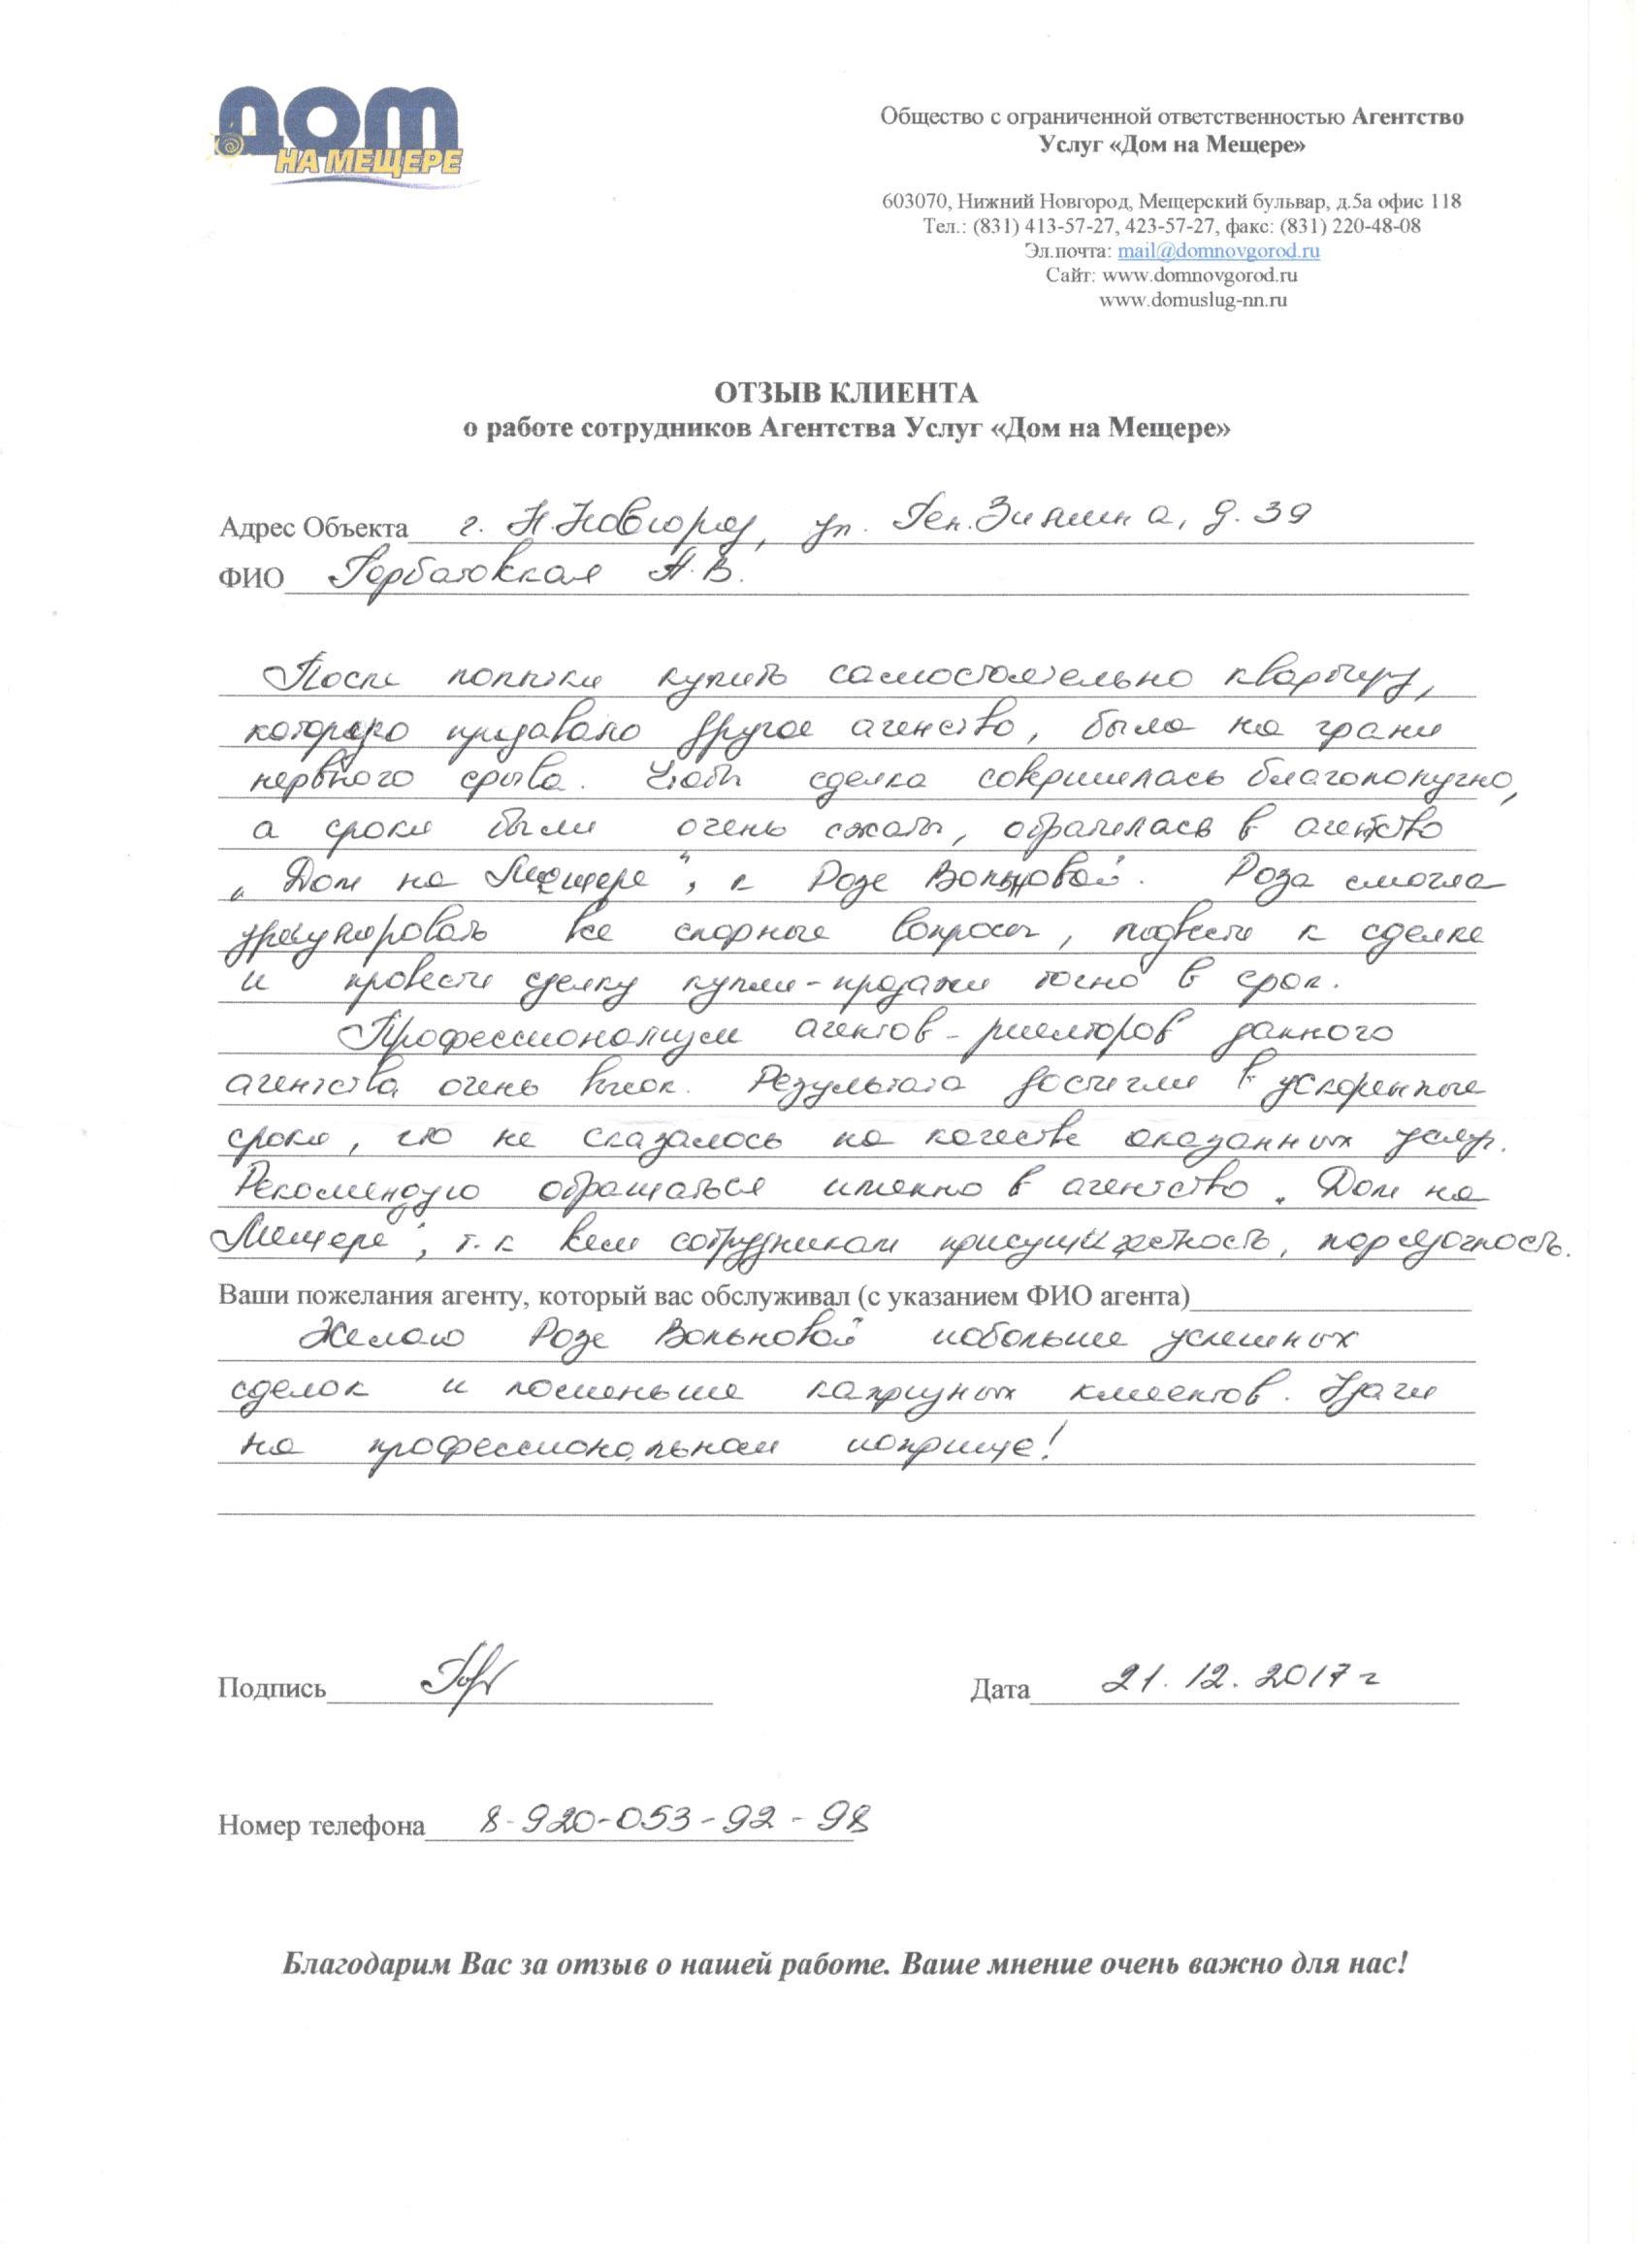 ДОМ
НА МЕЩЕРЕ
Общество с ограниченной ответственностью Агентство
Услуг «Дом на Мещере»
603070, Нижний Новгород, Мещерский бульвар, д.5а офис 118
Тел.: (831) 413-57-27, 423-57-27, факс: (831) 220-48-08
Эл.почта: mail@domnovgorod.ru
Сайт: www.domnovgorod.ru
www.domuslug-nn.ru
ОТЗЫВ КЛИЕНТА
о работе сотрудников Агентства Услуг «Дом на Мещере»
Адрес Объекта г. Н.Новгород, ул. Ген.Зимина, д. 39
ФИО Горбатовская А.В.
После попытки купить самостоятельно квартиру,
которую продавало другое агенство, была на грани
нервного срыва. Чтобы сделка совершилась благополучно,
а сроки были очень сжаты, обратилась в агентство
„Дом на Мещере", к Розе Вольновой. Роза смогла
урегулировать все спорные вопросы, подвести к сделке
и провести сделку купли-продажи точно в срок.
Профессионализм агентов-риелторов данного
агентства очень высок. Результата достигли в ускоренные
сроки, что не сказалось на качестве оказанных услуг.
Рекомендую обращаться именно в агентство „Дом на
Мещере", т.к всем сотрудникам присущи честность, порядочность.
Ваши пожелания агенту, который вас обслуживал (с указанием ФИО агента)
Желаю Розе Вольновой побольше успешных
сделок и поменьше капризных клиентов. Удачи
на профессиональном поприще!
Подпись Дата 21.12.2017г
Номер телефона 8-920-053-92-98
Благодарим Вас за отзыв о нашей работе. Ваше мнение очень важно для нас!